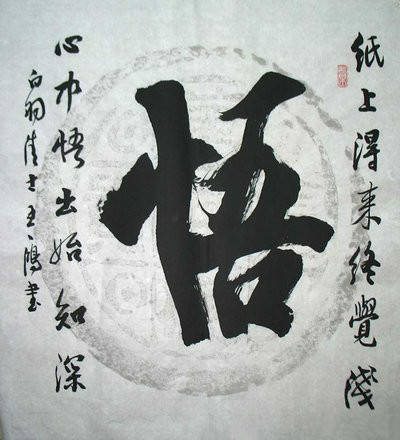 紙上得来終覺淺
悟
心中悟出始知深
白羽士王書